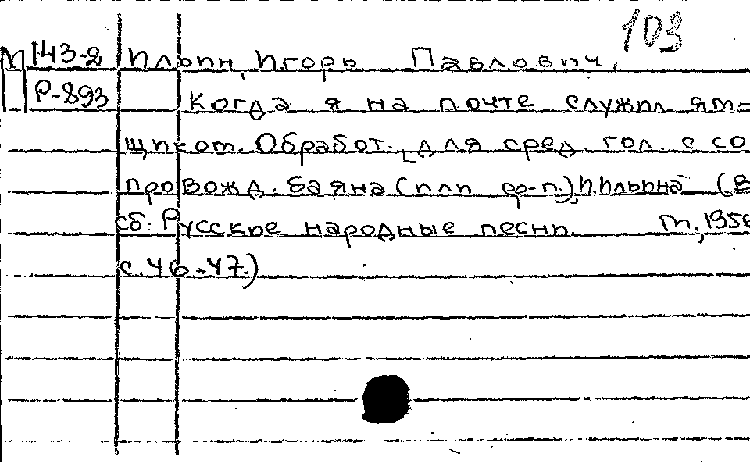 103
М 143-2 Ильин, Игорь Павлович.
Р-893 Когда я на почте служил ям-
щиком. Обработ. [для сред. гол. с со
провожд. баяна (или ф-п.)] И. Ильина (В
сб: Русские народные песни. М., 1956
с. 46-47.)